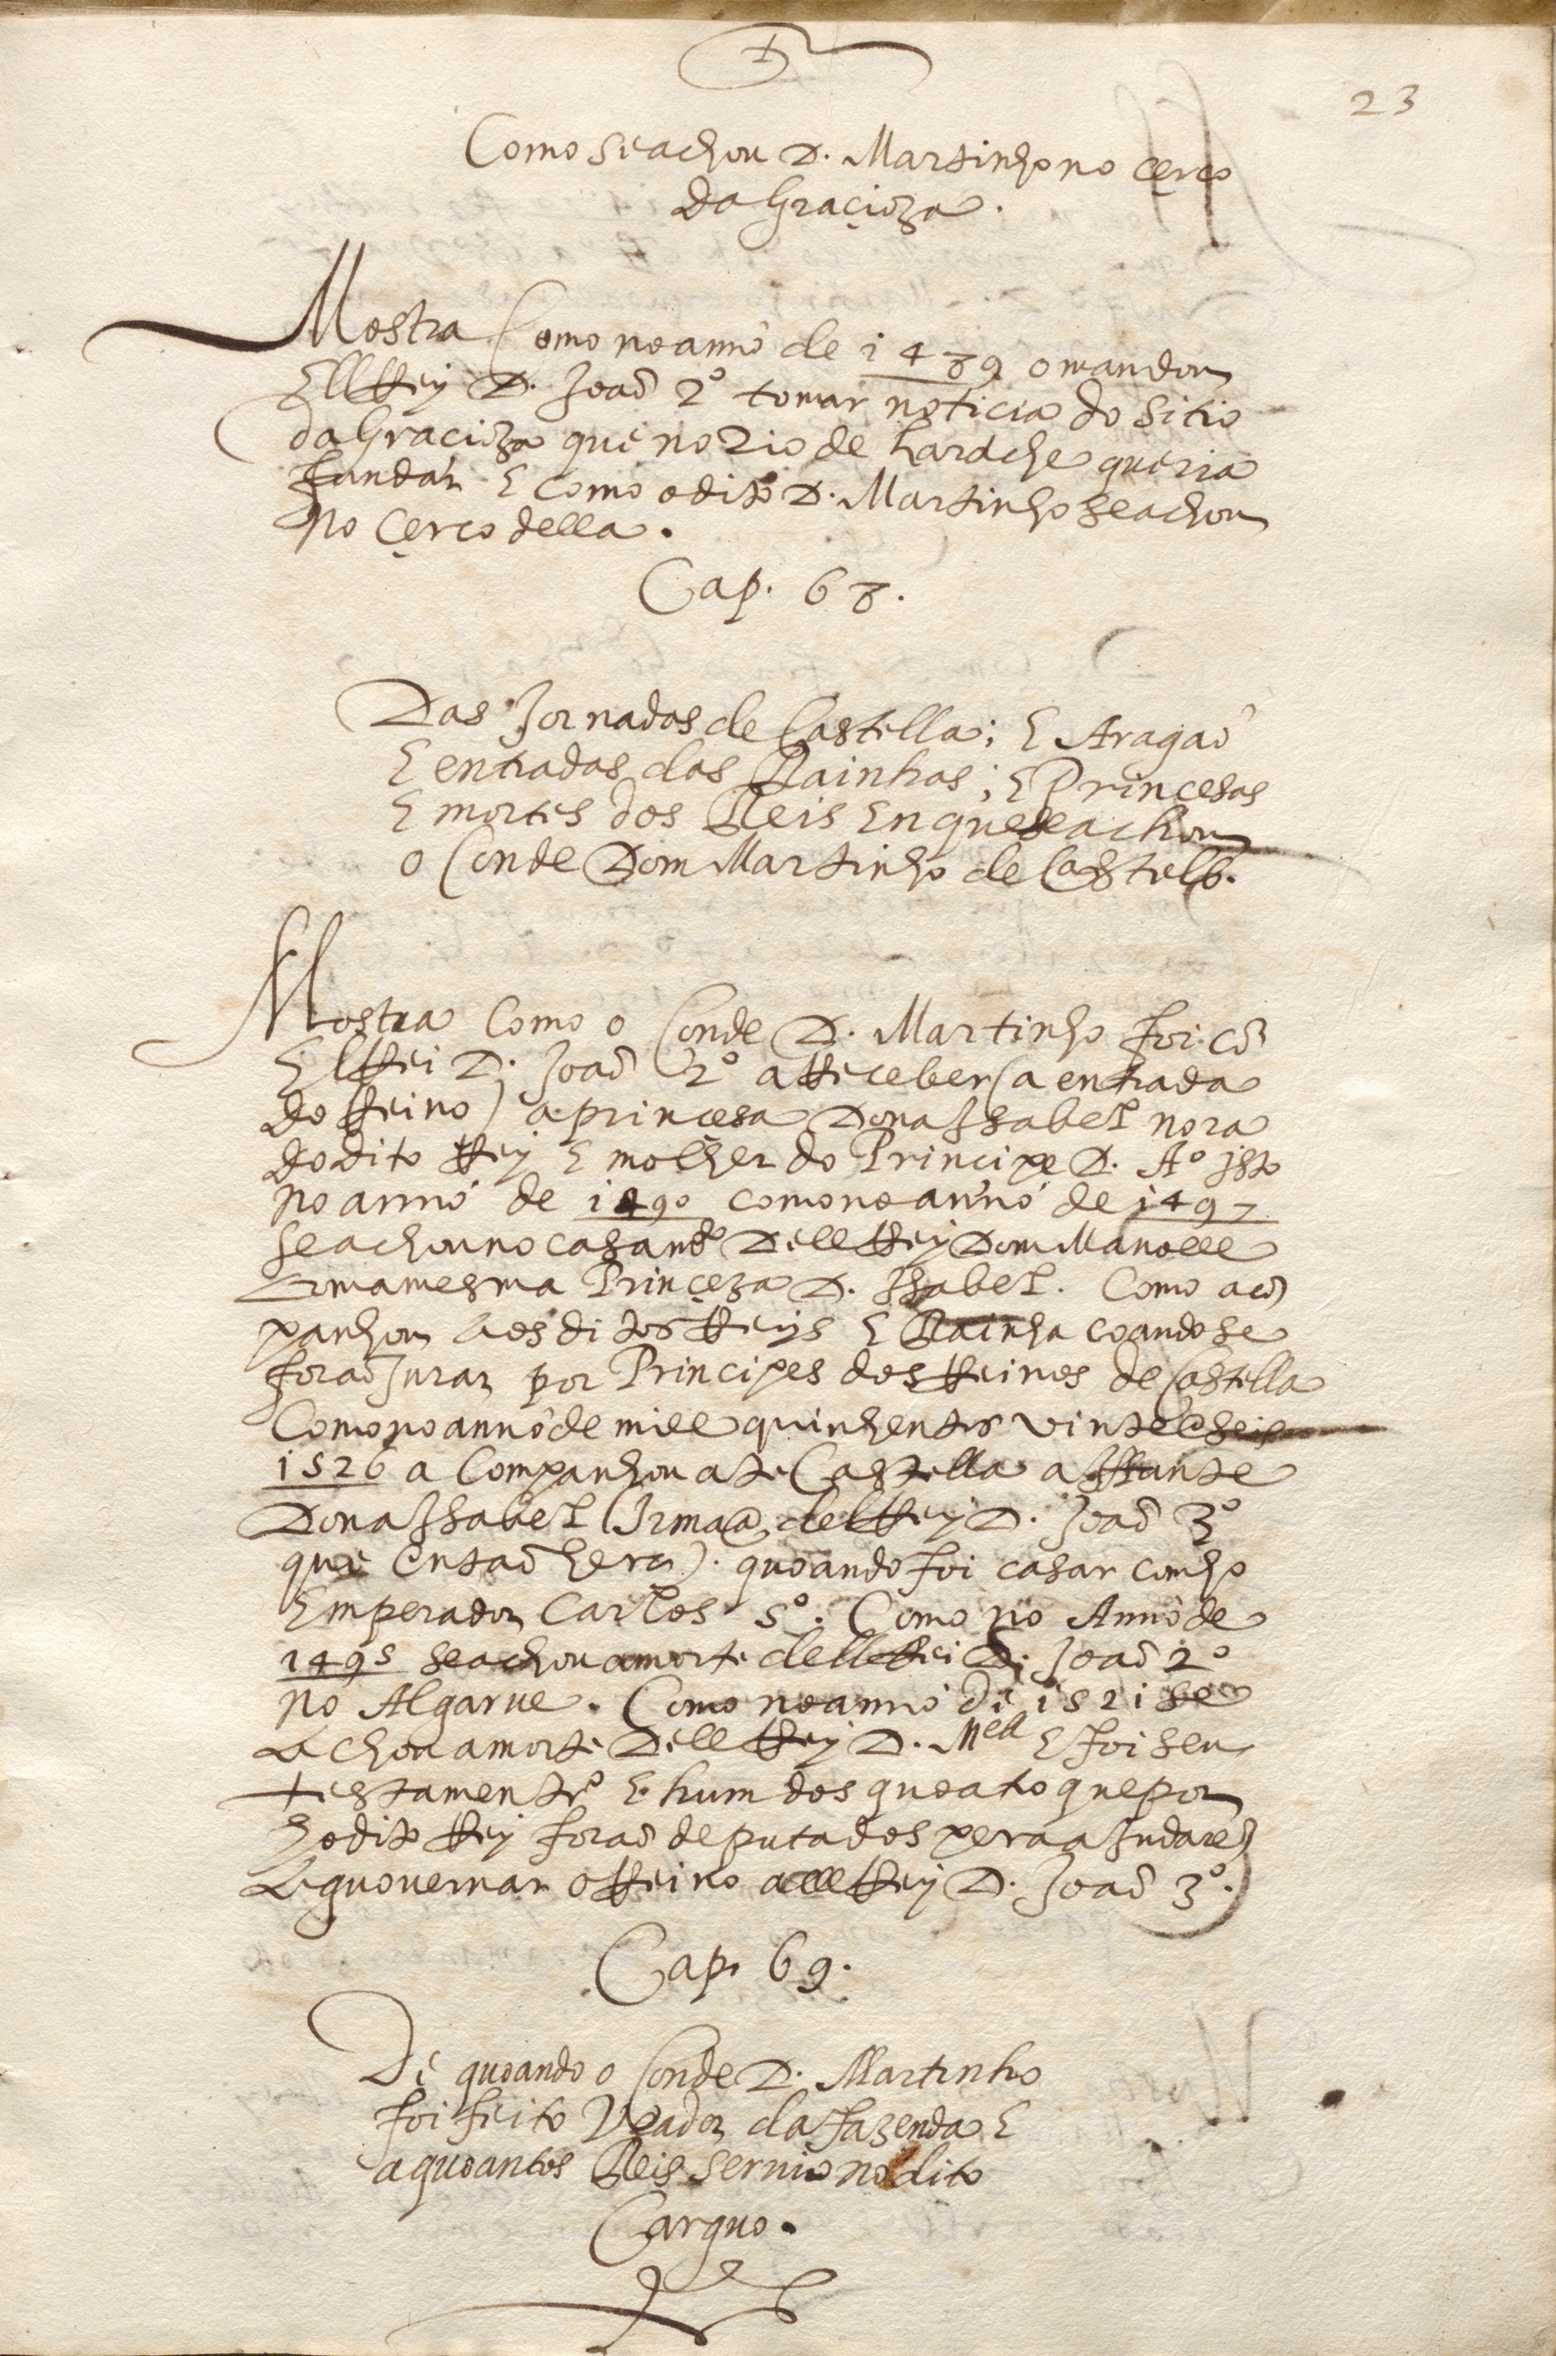 23
Como se achou D. Martinho no çerco
da Graçioza.
Mostra Como no anno de 1489 o mandou
Ell Rey D. Joaõ 2º tomar noticia do sitio
da Gracioza que no Rio de Larache queria
fundar E como o dito D. Martinho se achou
no çerco della.
Cap. 68.
Das Jornadas de Castella; E Aragaõ
E entradas das Rainhas; E Princesas
E mortes dos Reis Em que se achou
o Conde Dom Martinho de Castelb.
Mostra Como o Conde D. Martinho foi cõ
El Rei D. Joaõ 2º a Receber (a entrada
do Reino) a prinçesa Dona Isabel nora
do dito Rey E molher do Principe D. Aº isto
no anno de 1490 como no anno de 1497
se achou no casamtº Dell Rey Dom Manoell
com a mesma Prinçeza D. Isabel. Como acõ
panhou aos ditos Reys E Rainha coando se
foraõ Jurar por Principes dos Reinos de Castella
Como no anno de mill e quinhentos vinte e seis
1526 a Companhou ate Castella a Iffante
Dona Isabel (Irmaã del Rey D. Joaõ 3º
que Entaõ hera). quoando foi casar com ho
Emperador Carlos 5º. Como no Anno de
1495 se achou a morte dell Rei D. Joaõ 2º
no Algarue. Como no anno de 1521 se
Achou a morte Dell Rey D. Mell E foi seu
testamentrº E hum dos quoatro que por
ho dito Rey foraõ deputados pera aJudarẽ
A guouernar o Reino a ell Rey D. Joaõ 3º.
Cap. 69.
De quoando o Conde D. Martinho
foi feito Veador da fazenda E
a quoantos Reis seruio no dito
Carguo.